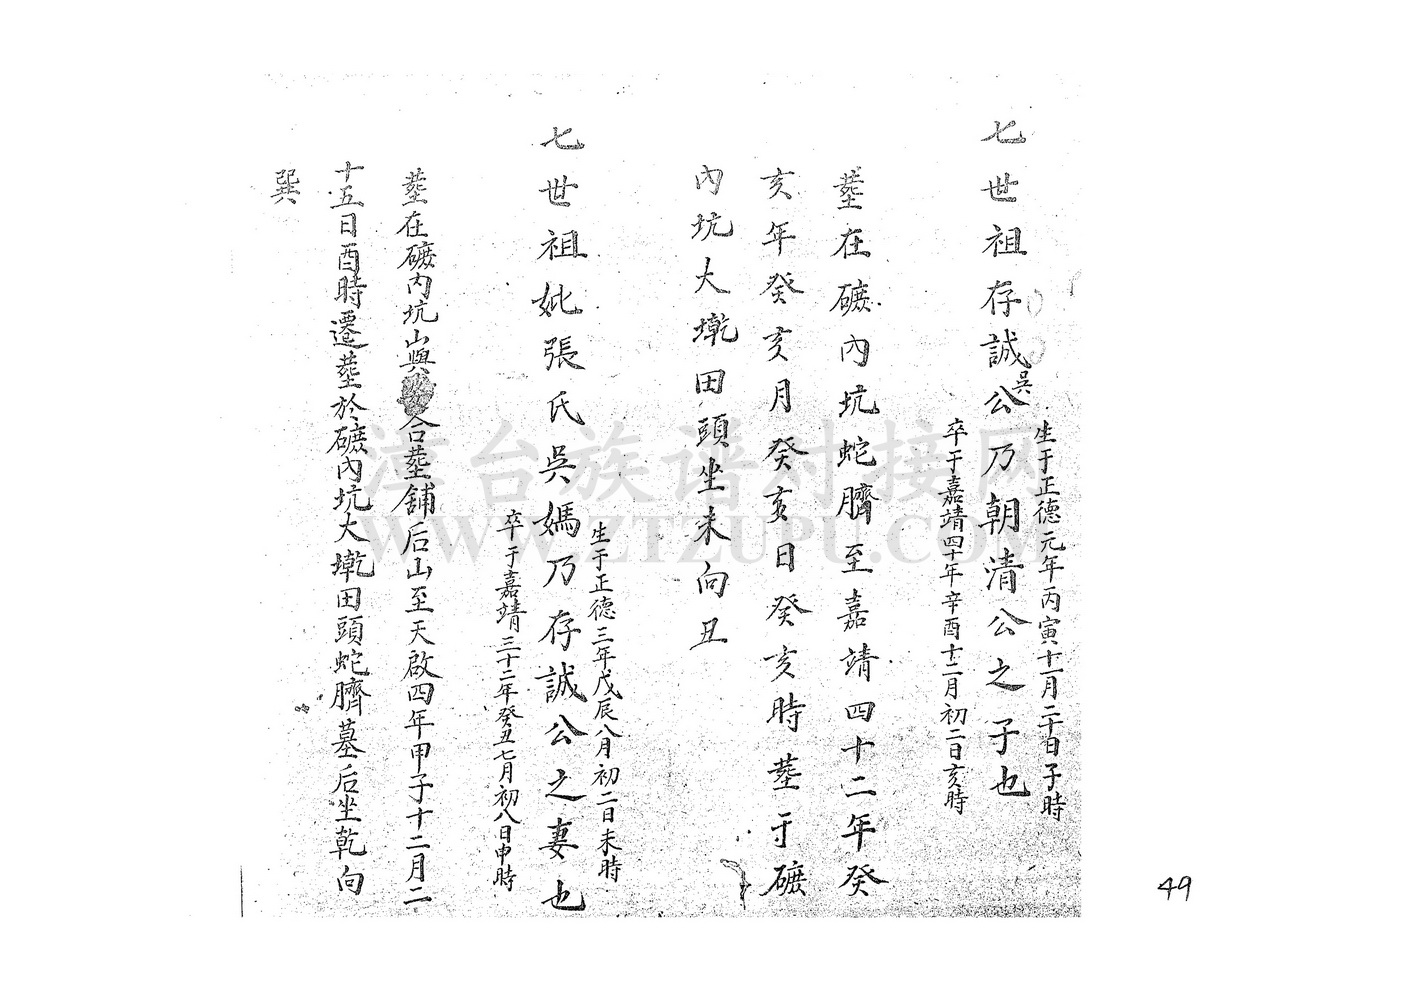 七世祖存誠吳公乃朝清公之子也
生于正德元年丙寅十一月二十日子時
卒于嘉靖四十年辛酉十二月初二日亥時
塟在礦內坑蛇臍至嘉靖四十二年癸
亥年癸亥月癸亥日癸亥時塟于礦
內坑大墘田頭坐未向丑
七世祖妣張氏吳媽乃存誠公之妻也
生于正德三年戊辰八月初二日未時
卒于嘉靖三十二年癸丑七月初八日申時
塟在礦內坑山與合塟舖后山至天啟四年甲子十二月二
十五日酉時遷塟於礦內坑大墘田頭蛇臍墓后坐乾向
巽
漳台族谱对接网
WWW.ZTZUPU.COM
49